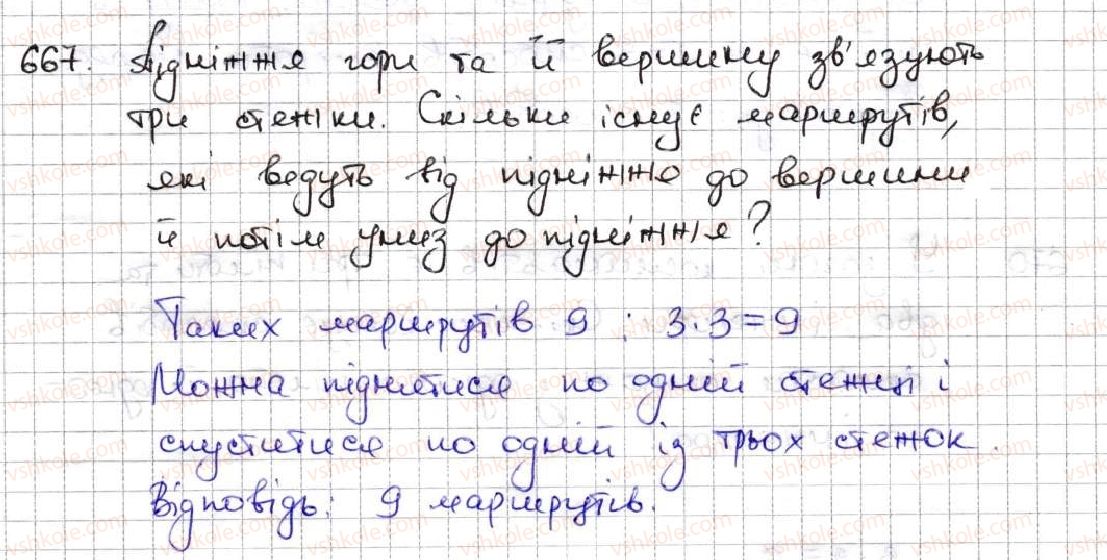 667. Підніжжя гори та її вершину зв'язують
три стежки. Скільки існує маршрутів,
які ведуть від підніжжя до вершини
й потім униз до підніжжя?
Таких маршрутів 9 ; 3·3=9
Можна піднятися по одній стежці і
спуститися по одній із трьох стежок.
Відповідь: 9 маршрутів.